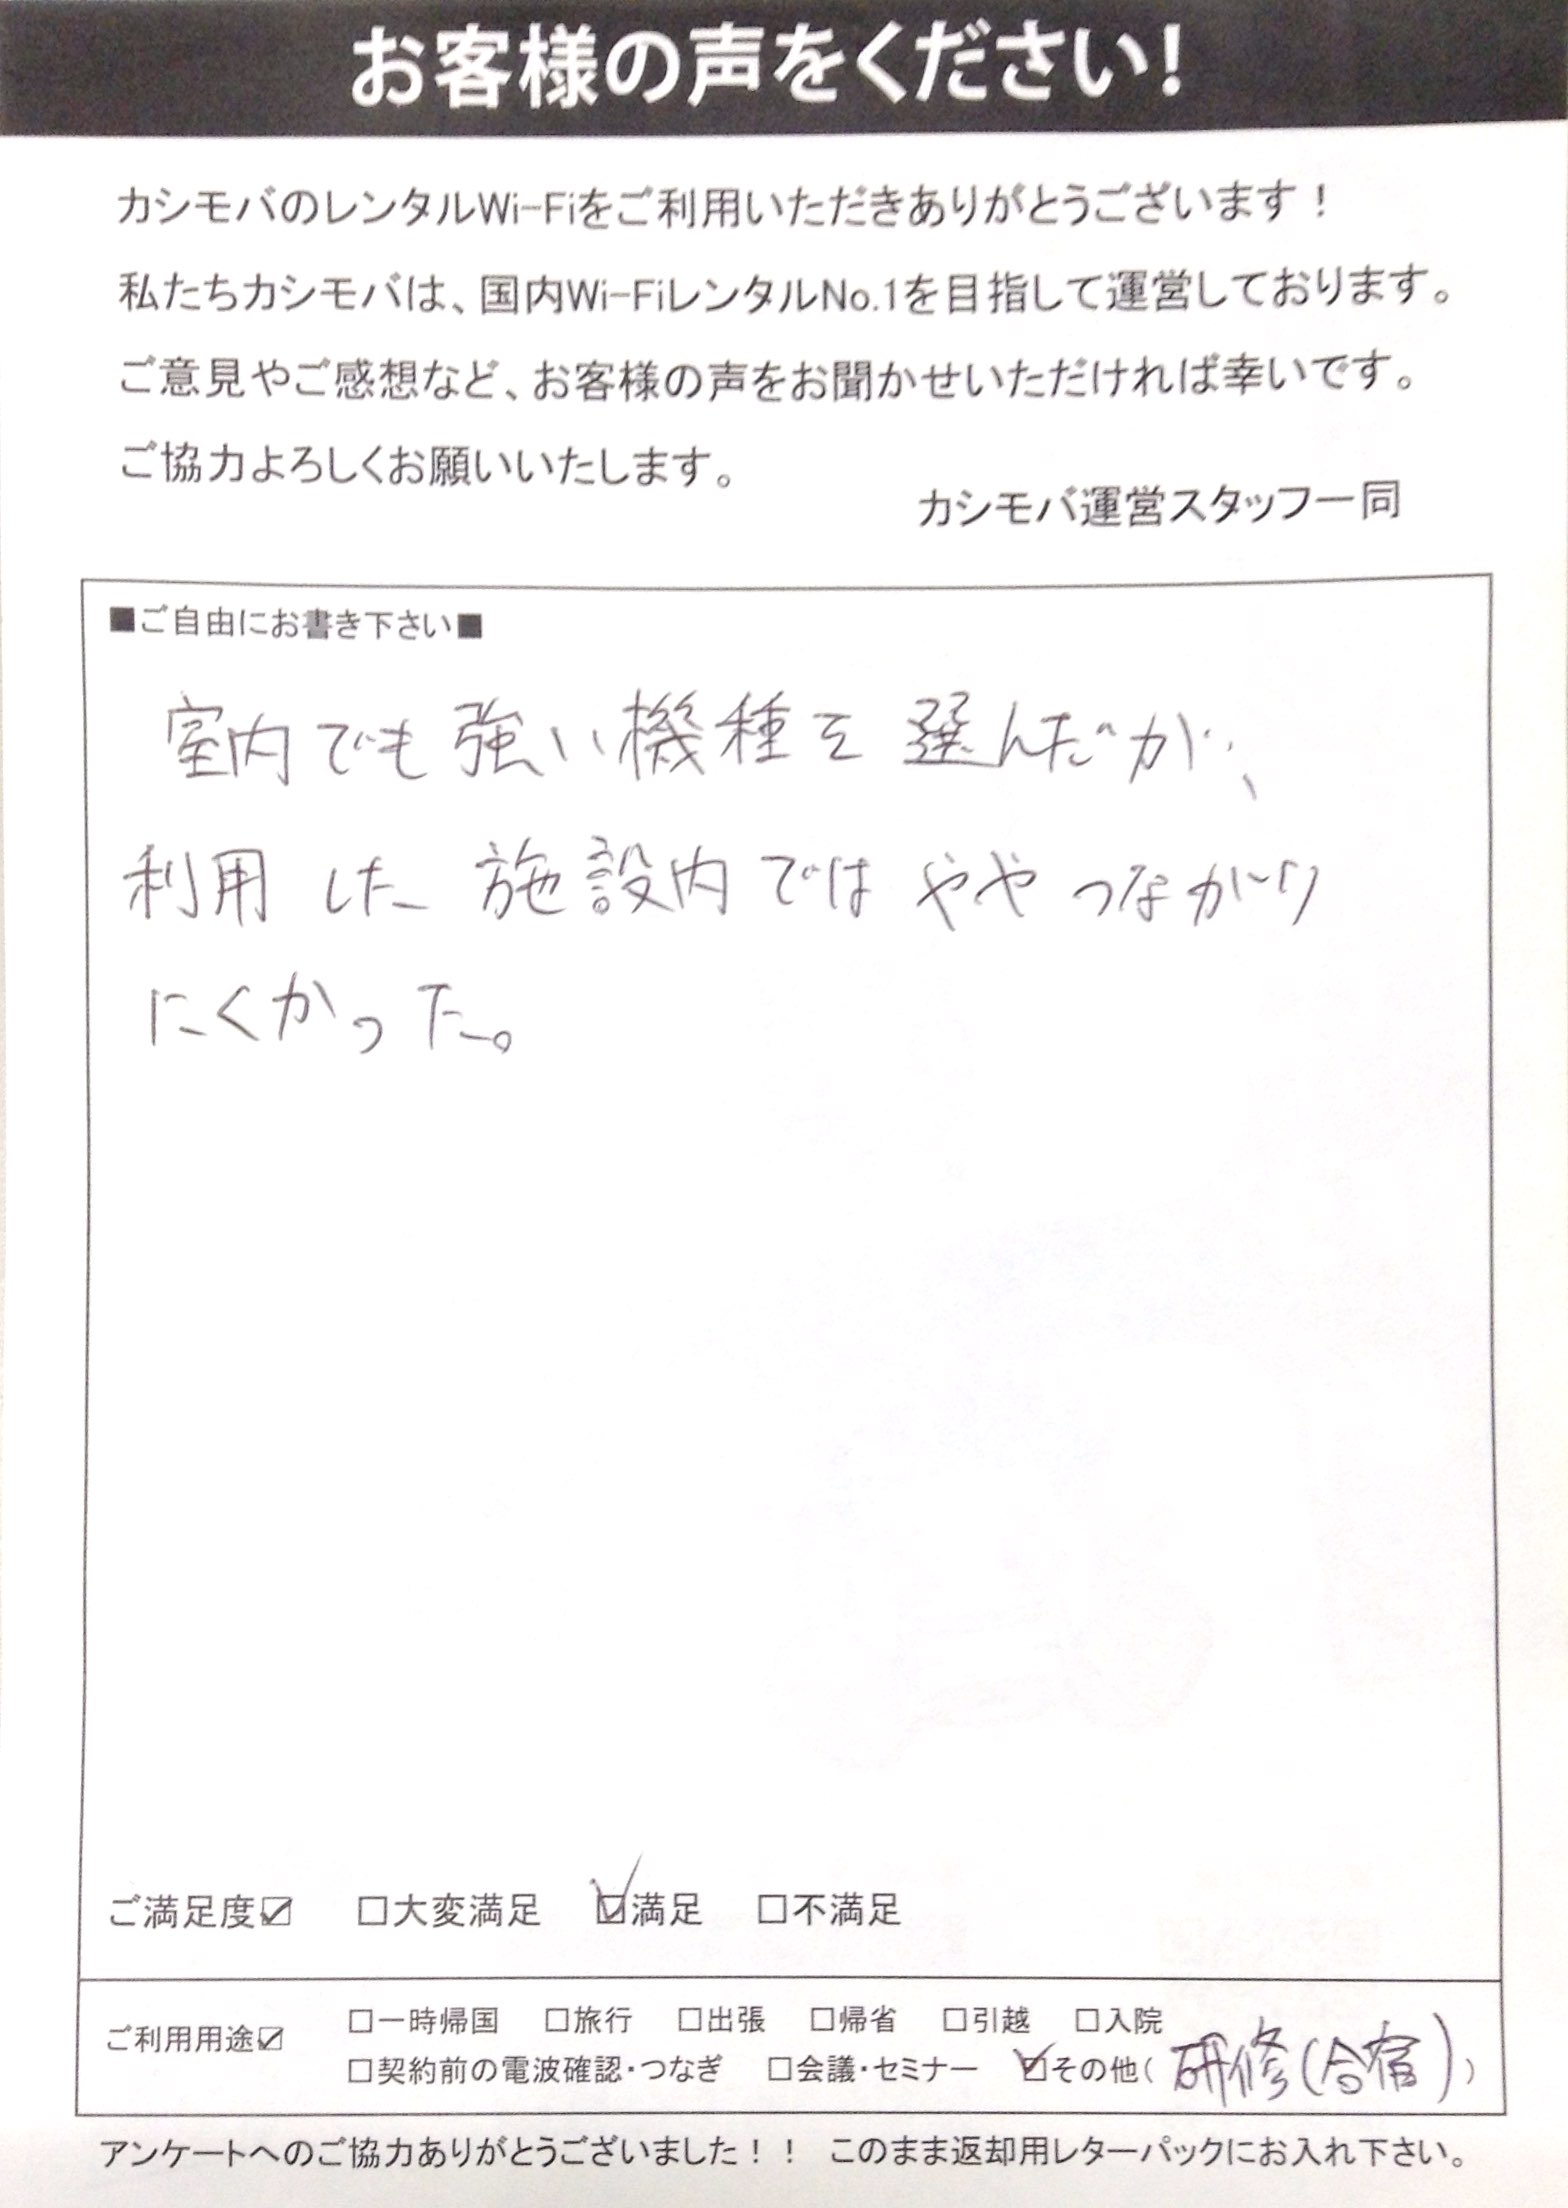 お客様の声をください!
カシモバのレンタルWi-Fiをご利用いただきありがとうございます！
私たちカシモバは、国内Wi-FiレンタルNo.1を目指して運営しております。
ご意見やご感想など、お客様の声をお聞かせいただければ幸いです。
ご協力よろしくお願いいたします。
カシモバ運営スタッフ一同
■ご自由にお書き下さい■
室内でも強い機種を選んだが、
利用した施設内ではややつながり
にくかった。
ご満足度☑ □大変満足 ☑満足 □不満足
ご利用用途☑ □一時帰国 □旅行 □出張 □帰省 □引越 □入院
□契約前の電波確認・つなぎ □会議・セミナー ☑その他( 研修(合宿) )
アンケートへのご協力ありがとうございました！！ このまま返却用レターパックにお入れ下さい。